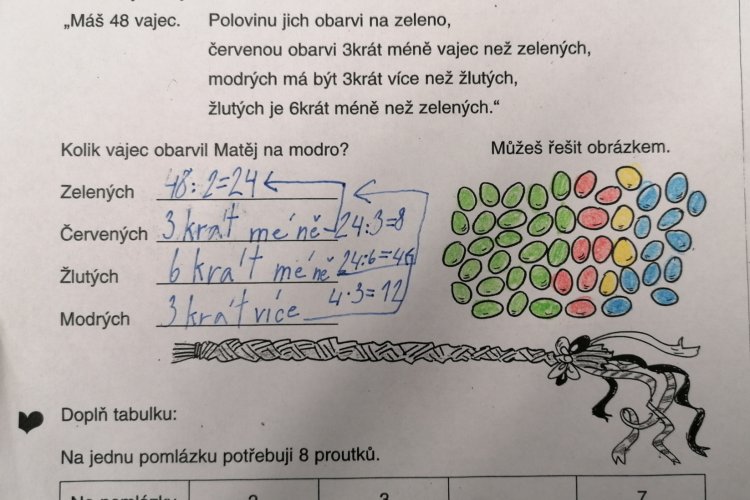 „Máš 48 vajec. Polovinu jich obarvi na zeleno,
červenou obarvi 3krát méně vajec než zelených,
modrých má být 3krát více než žlutých,
žlutých je 6krát méně než zelených.“
Kolik vajec obarvil Matěj na modro? Můžeš řešit obrázkem.
Zelených 48:2=24
Červených 3 krát méně 24:3=8
Žlutých 6 krát méně 24:6=4
Modrých 3 krát více 4·3=12
Doplň tabulku:
Na jednu pomlázku potřebuji 8 proutků.
2 3 7